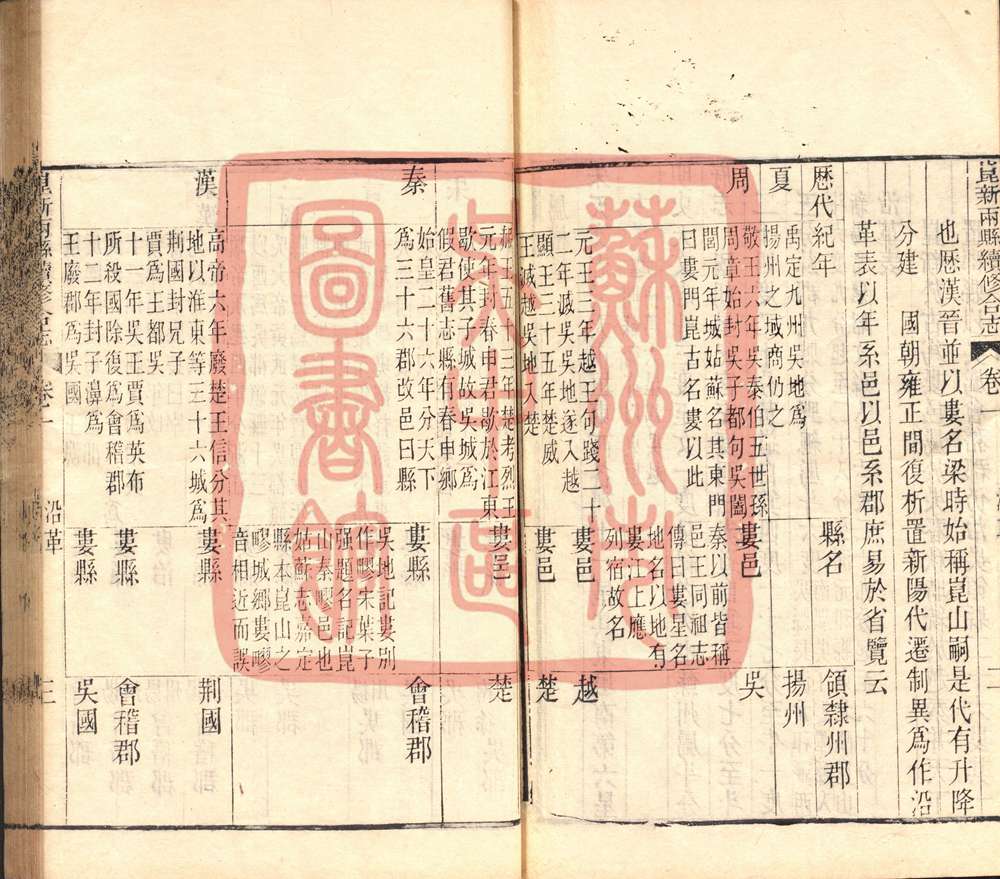 崑新兩縣續修合志
卷一
也歷漢晉並以婁名梁時始稱崑山嗣是代有升降
分建　國朝雍正間復析置新陽代遷制異爲作沿
革表以年系邑以邑系郡庶易於省覽云
歷代紀年
縣名
領隸州郡
夏
禹定九州吳地爲
揚州之域商仍之
揚州
周
敬王六年吳泰伯五世孫
周章始封吳子都句吳闔
閭元年城姑蘇名其東門
曰婁門崑古名婁以此
婁邑
秦以前皆稱
邑王同祖志
傳曰婁星名
地名以地有
婁江上應
列宿故名
吳
元王三年越王句踐二十
二年滅吳吳地遂入越
婁邑
越
顯王三十五年楚威
王滅越吳地入楚
婁邑
楚
赧王五十三年楚考烈王
元年封春申君歇於江東
歇使其子城故吳城爲
假君舊志縣有春申鄉
婁邑
楚
秦
始皇二十六年分天下
爲三十六郡改邑曰縣
婁縣
吳地記婁別
作㽌宋葉子
强題名記崑
山秦㽌邑也
姑蘇志嘉定
縣本崑山之
㽌城鄉婁㽌
音相近而誤
會稽郡
漢
高帝六年廢楚王信分其
地以淮東等三十六城爲
荆國封兄子
賈爲王都吳
婁縣
荆國
十一年吳王賈爲英布
所殺國除復爲會稽郡
婁縣
會稽郡
十二年封子濞爲
王廢郡爲吳國
婁縣
吳國
崑新兩縣續修合志
卷一
沿革
三
蘇州市
圖書館